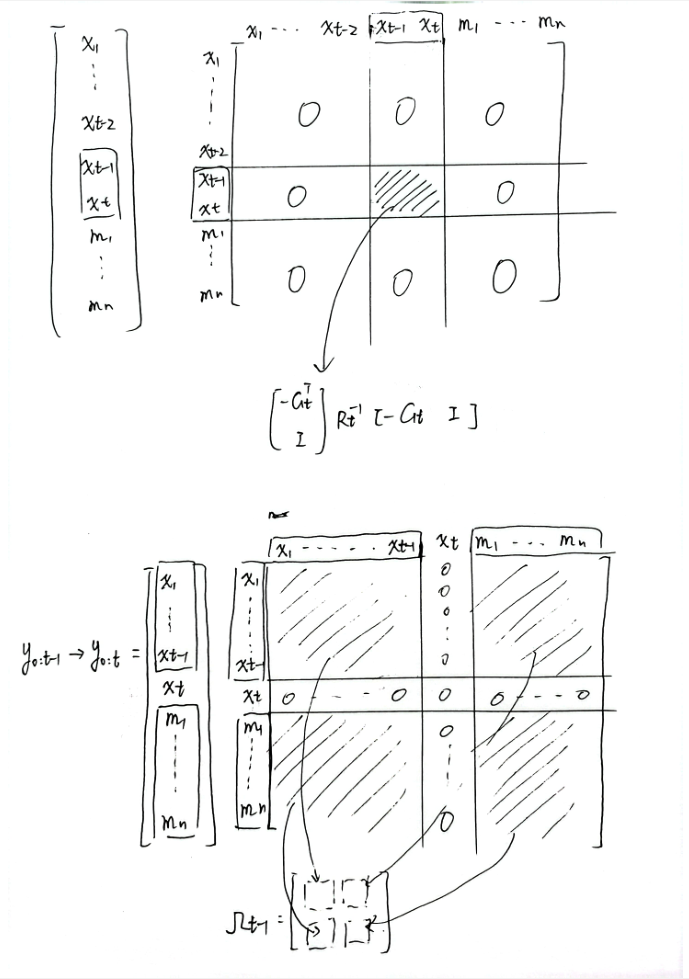 x1 ... xt-2 xt-1 xt m1 ... mn
x1
xt-2
xt-1
xt
m1
mn
x1
xt-2
xt-1
xt
m1
mn
0 0 0
0 0
0 0 0
[-Gt^T
I] Rt^-1 [-Gt I]
x1 ..... xt-1 xt m1 ... mn
y0:t-1 → y0:t =
x1
xt-1
xt
m1
mn
x1
xt-1
xt
m1
mn
0
0
0
0
0 --- 0 0 0 --- 0
0
0
Ωt-1 =